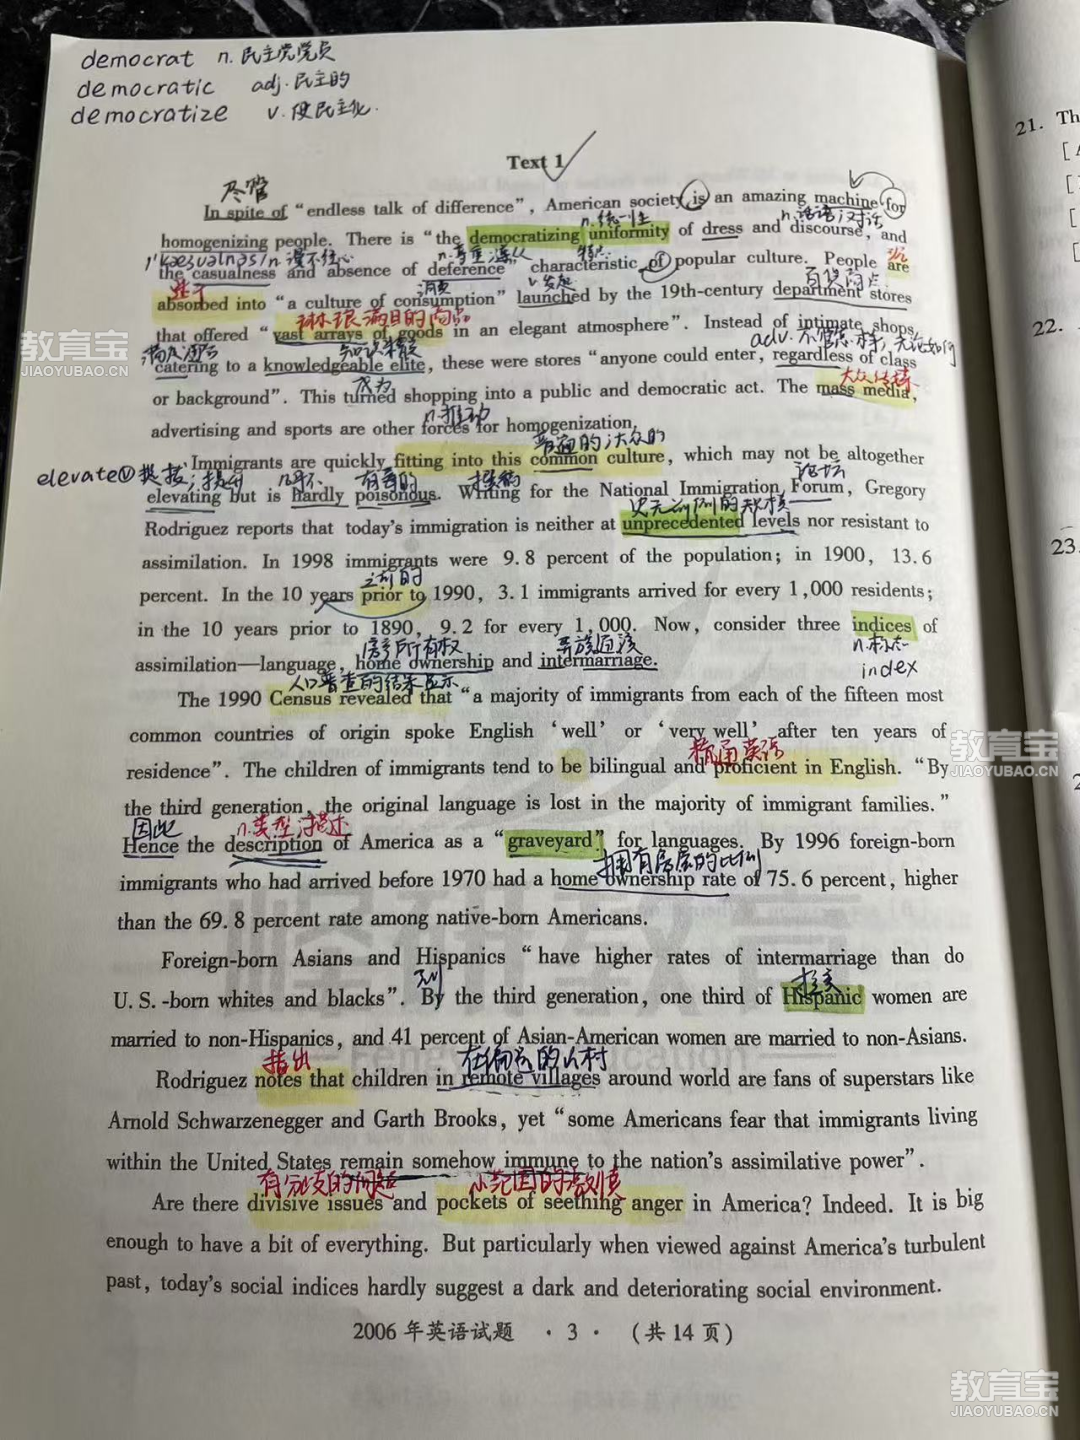 democrat n. 民主党党员
democratic adj. 民主的
democratize v. 使民主化.
21. Th
Text 1
尽管
In spite of “endless talk of difference”, American society is an amazing machine for
n. 统一性 n. 话语; 对话
homogenizing people. There is “the democratizing uniformity of dress and discourse, and
n. 漫不经心 n. 尊重; 特点
the casualness and absence of deference” characteristic of popular culture. People are
消费 v. 发起 百货商店
absorbed into “a culture of consumption” launched by the 19th-century department stores
琳琅满目的商品
22.
that offered “vast arrays of goods in an elegant atmosphere”. Instead of intimate shops,
知识精英 adv. 不管怎样; 无论如何
catering to a knowledgeable elite, these were stores “anyone could enter, regardless of class
成为 大众传媒
or background”. This turned shopping into a public and democratic act. The mass media,
n. 推动
advertising and sports are other forces for homogenization.
普遍的 大众的
Immigrants are quickly fitting into this common culture, which may not be altogether
elevate v 提拔; 提升 几乎不 有毒的 论坛
elevating but is hardly poisonous. Writing for the National Immigration Forum, Gregory
史无前例的规模
Rodriguez reports that today’s immigration is neither at unprecedented levels nor resistant to
23.
assimilation. In 1998 immigrants were 9.8 percent of the population; in 1900, 13.6
之前的
percent. In the 10 years prior to 1990, 3.1 immigrants arrived for every 1,000 residents;
in the 10 years prior to 1890, 9.2 for every 1,000. Now, consider three indices of
房子所有权 异族通婚 n. 标志
assimilation—language, home ownership and intermarriage.
index
人口普查的结果显示
The 1990 Census revealed that “a majority of immigrants from each of the fifteen most
common countries of origin spoke English ‘well’ or ‘very well’ after ten years of
精通英语
residence”. The children of immigrants tend to be bilingual and proficient in English. “By
the third generation, the original language is lost in the majority of immigrant families.”
因此 n. 类型; 描述
Hence the description of America as a “graveyard” for languages. By 1996 foreign-born
拥有房屋的比例
immigrants who had arrived before 1970 had a home ownership rate of 75.6 percent, higher
than the 69.8 percent rate among native-born Americans.
Foreign-born Asians and Hispanics “have higher rates of intermarriage than do
到
U.S.-born whites and blacks”. By the third generation, one third of Hispanic women are
married to non-Hispanics, and 41 percent of Asian-American women are married to non-Asians.
指出 在偏远的山村
Rodriguez notes that children in remote villages around world are fans of superstars like
Arnold Schwarzenegger and Garth Brooks, yet “some Americans fear that immigrants living
within the United States remain somehow immune to the nation’s assimilative power”.
有分歧的问题 小范围的
Are there divisive issues and pockets of seething anger in America? Indeed. It is big
enough to have a bit of everything. But particularly when viewed against America’s turbulent
past, today’s social indices hardly suggest a dark and deteriorating social environment.
2006 年英语试题 · 3 · (共 14 页)
教育宝
JIAOYUBAO.CN
教育宝
JIAOYUBAO.CN
教育宝
JIAOYUBAO.CN